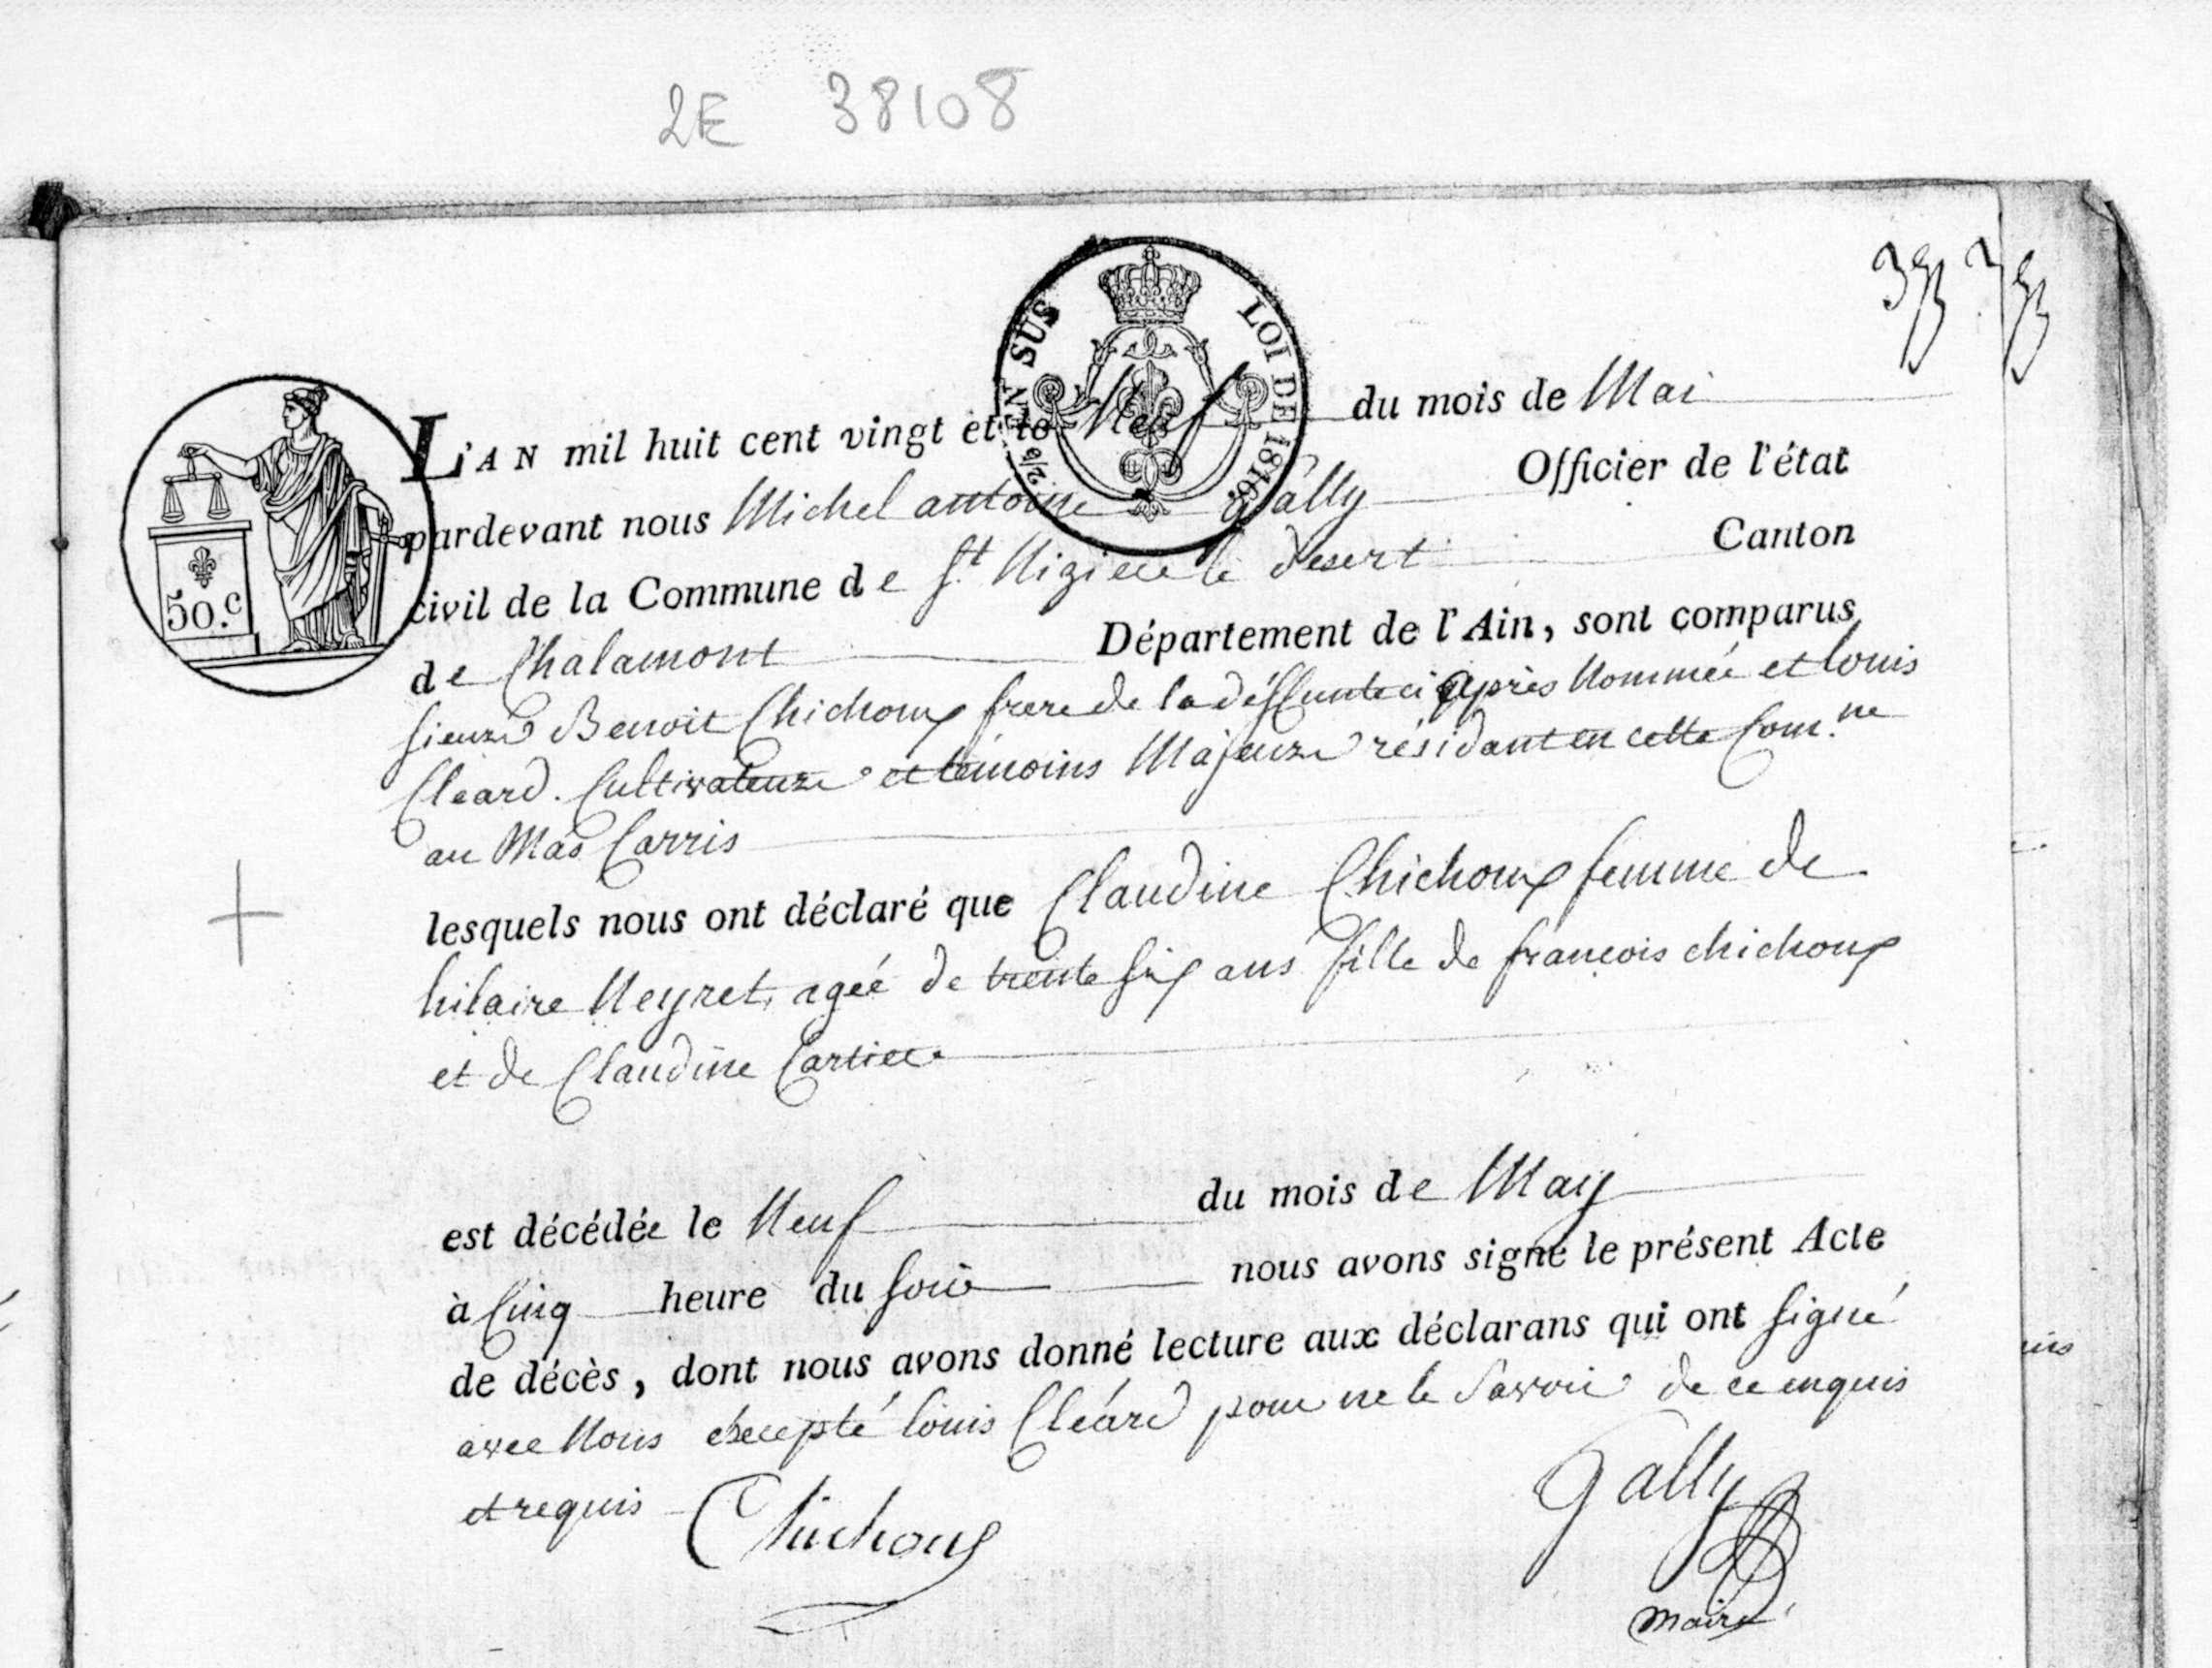 2E 38108
393 393
2/e EN SUS LOI DE 1816.
50.c
L'AN mil huit cent vingt et le Neuf du mois de Mai
pardevant nous Michel antoine Gally Officier de l'état
civil de la Commune de St Nizier le desert Canton
de Chalamont Département de l'Ain, sont comparus
sieurs Benoit Chichoux frere de la déffunte ci après Nommée et louis
Cléard. Cultivateurs et témoins Majeurs résidant en cette Com.ne
au Mas Carris
lesquels nous ont déclaré que Claudine Chichoux femme de
hilaire Neyret, agée de trente six ans fille de francois chichoux
et de Claudine Cartier
est décédée le Neuf du mois de May
à Cinq heure du soir nous avons signé le présent Acte
de décès, dont nous avons donné lecture aux déclarans qui ont signé
avec Nous éxcepté louis Cléard pour ne le Savoir de ce enquis
et requis Chichoux Gally
maire